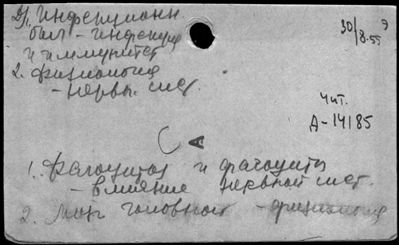 2/1. Инфекционн.
бол - инфекция
и иммунитет
2. Физиология
- нервн. сист.
30/8.55 э
Чит.
А-14185
А
1. Фагоцитоз и фагоциты
- влияние нервной сист.
2. Мозг головной - физиология